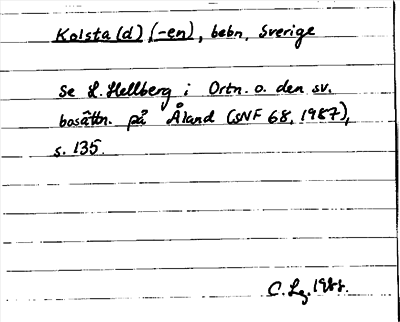 Kolsta(d), (-en), bebn, Sverige
Se L. Hellberg i Ortn. o. den sv.
bosättn. på Åland (SNF 68, 1987),
s. 135.
C. Lg. 1988.